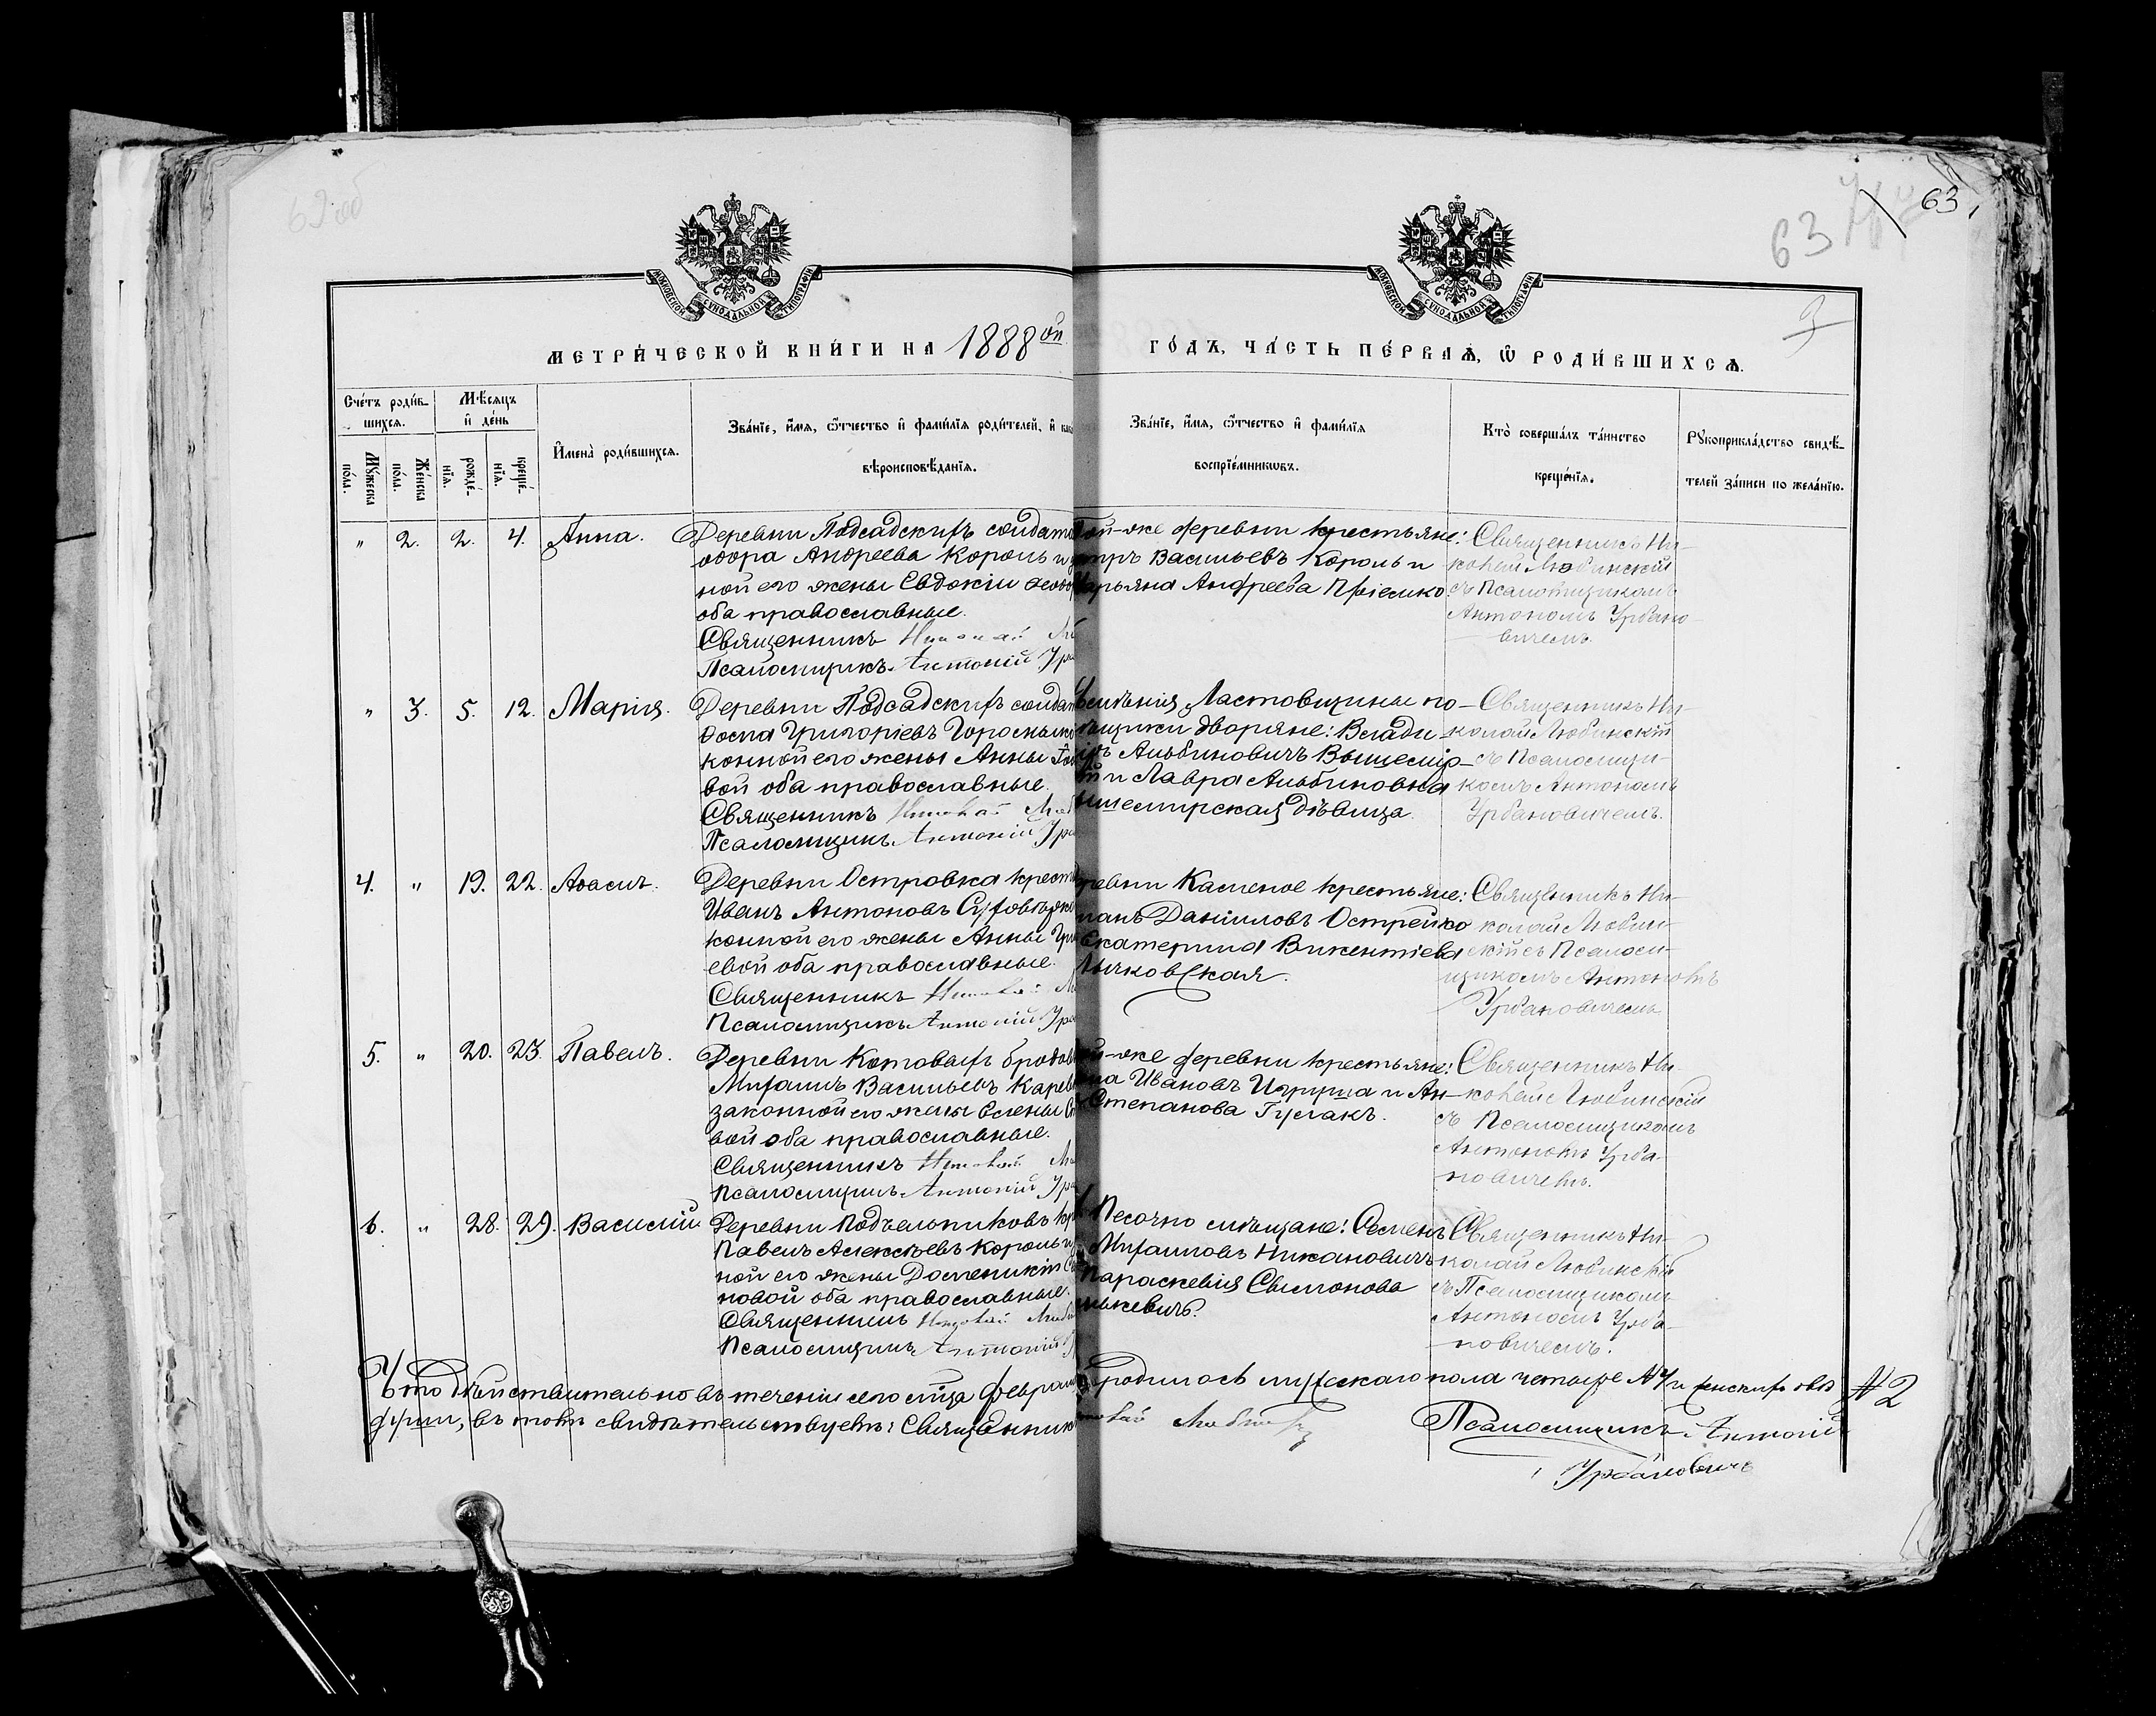 63 об
63
63,
3
МОСКОВСКОЙ СУНОДАЛЬНОЙ ТИПОГРАФІИ
МОСКОВСКОЙ СУНОДАЛЬНОЙ ТИПОГРАФІИ
МЕТРИ́ЧЕСКОЙ КНИ́ГИ НА 1888ой
ГО́ДЪ, ЧА́СТЬ ПЕ́РВАѦ, Ѡ РОДИ́ВШИХСѦ.
Сче́тъ роди́в-
шихсѧ.
Мꙋ́жеска по́ла.
Же́нска по́ла.
Мѣ́сѧцъ
и҆ де́нь
рожде́-нїѧ.
креще́-нїѧ.
И҆мена̀ роди́вшихсѧ.
Зва́нїе, и҆́мѧ, ѻ҆́тчество и҆ фами́лїѧ роди́телей, и҆
вѣроисповѣ́данїѧ.
Зва́нїе, и҆́мѧ, ѻ҆́тчество и҆ фами́лїѧ
воспрїе́мникѡвъ.
Кто̀ соверша́лъ та́инство
креще́нїѧ.
Рꙋкоприкла́дство свидѣ́-
телей за́писи по жела́нїю.
" 2. 2. 4. Анна.
Деревни Подсадскихъ солдат
одора Андреева Король и
ной его жены Евдокіи Ѳеодор
оба православные.
Священникъ Николай
Псаломщикъ Антоній Ур
Той-же деревни крестьяне:
Васильевъ Король и
Марьяна Андреева Пріемко
Священникъ Ни-
колай Любинскій
съ Псаломщикомъ
Антоніомъ Урбано-
вичемъ.
" 3. 5. 12. Марія.
Деревни Подсадскихъ солдат
Григоріевъ
конной его жены Анны
вой оба православные.
Священникъ Николай Люб
Псаломщикъ Антоній Ур
имѣнія Ластовщины по-
мѣщики дворяне: Влади-
Альбиновичъ Вышемір-
и Лавра Альбиновна
шемирская дѣвица.
Священникъ Ни-
колай Любинскій
съ Псаломщи-
комъ Антоніомъ
Урбановичемъ.
4. " 19. 22.
Деревни Островка крест
Иванъ Антоновъ
конной его жены Анны
евой оба православные.
Священникъ Николай Л
Псаломщикъ Антоній Ур
деревни Каменое крестьяне:
Даніиловъ Острейко
Екатерина Викентіева
Священникъ Ни-
колай Любин-
скій съ Псаломи-
щикомъ Антоніомъ
Урбановичемъ
5. " 20. 23. Павелъ.
Деревни Котовыхъ бродов
Михаилъ Васильевъ
законной его жены Елены
вой оба православные.
Священникъ Николай Л
Псаломщикъ Антоній Ур
той-же деревни крестьяне:
Ивановъ и Ан-
Степанова Гуслакъ.
Священникъ Ни-
колай Любинскій
съ Псаломщикомъ
Антоніомъ Урба-
новичемъ.
6. " 28. 29. Василій.
Деревни Подъельниковъ кр
Павелъ Алексѣевъ Король и
ной его жены Доменикіи
новой оба православные.
Священникъ Николай Люб
Псаломщикъ Антоній
Песочно мѣщане: Семенъ
Михаиловъ Никановичъ
Параскевія Симонова
Священникъ Ни-
колай Любинскій
съ Псаломщикомъ
Антоніомъ Урба-
новичемъ.
Что дѣйствительно въ теченіи сего мѣсяца Февраля
родилось мужескаго пола четыре №4 и женскихъ двѣ №2
души, въ томъ свидѣтельствуемъ: Священник
Николай Любинскій Псаломщикъ Антоній
Урбановичъ